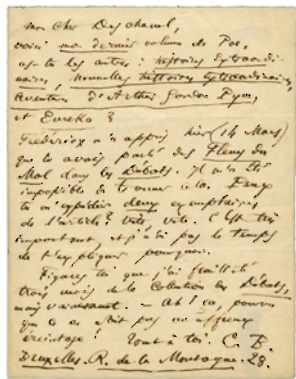 mon cher Deschanel,
voici mon dernier volume de Poe,
as-tu les autres : histoires Extraordi-
naires, Nouvelles histoires Extraordinaires,
Aventures d'Arthur Gordon Pym,
et Eureka ?
Frédérix m'a appris hier (14 Mars)
que tu avais parlé des Fleurs du
Mal dans les Débats. Il m'a été
impossible de trouver cela. Peux
tu m'expédier deux exemplaires
de l'article ? vite vite. C'est très
important, et je n'ai pas le temps
de t'expliquer pourquoi.
Figure toi que j'ai feuilleté
trois mois de la collection des Débats,
mais vainement. — Ah ! ça, pourvu
que ce ne soit pas un affreux
éreintage ! Tout à toi. C. B.
Bruxelles. R. de la Montagne. 28.